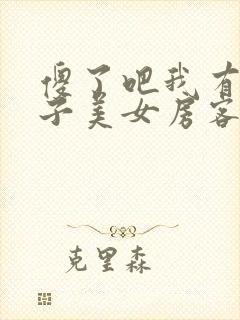 傻了吧我有
子美女房客
克里森